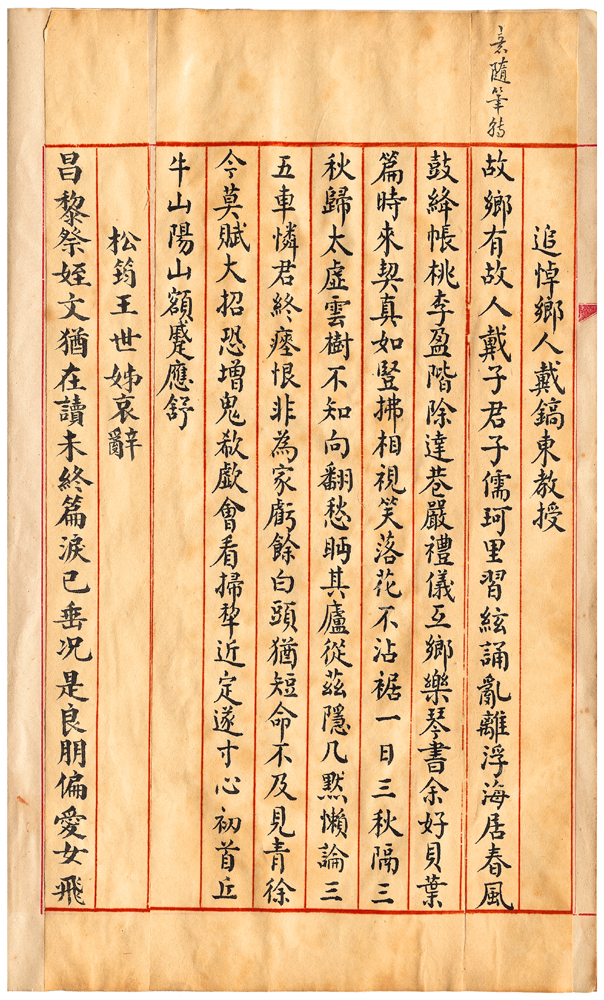 隨筆
追悼鄉人戴鎬東教授
故鄉有故人戴子君子儒珂里習絃誦亂離浮海居春風
鼓絳帳桃李盈階除達巷嚴禮儀互鄉樂琴書余好貝葉
篇時來契真如豎拂相視笑落花不沾裾一日三秋隔三
秋歸太虛雲樹不知向翻愁眄其廬從茲隱几默懶論三
五車憐君終瘞恨非為家虧餘白頭猶短命不及見青徐
今莫賦大招恐增鬼欷歔會看掃犂近定遂寸心初首丘
牛山陽山額蹙應舒
松筠王世姊哀辭
昌黎祭姪文猶在讀未終篇淚已垂况是良朋偏愛女飛